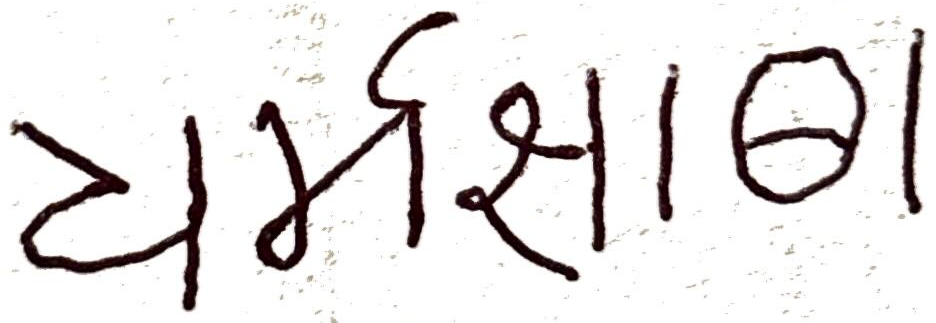 ધર્મશાળા